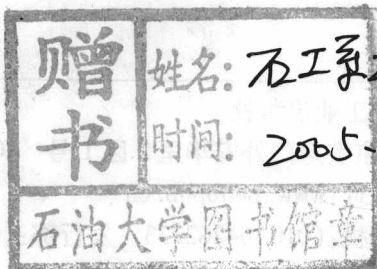 赠书
姓名: 石工系
时间: 2005-
石油大学图书馆章